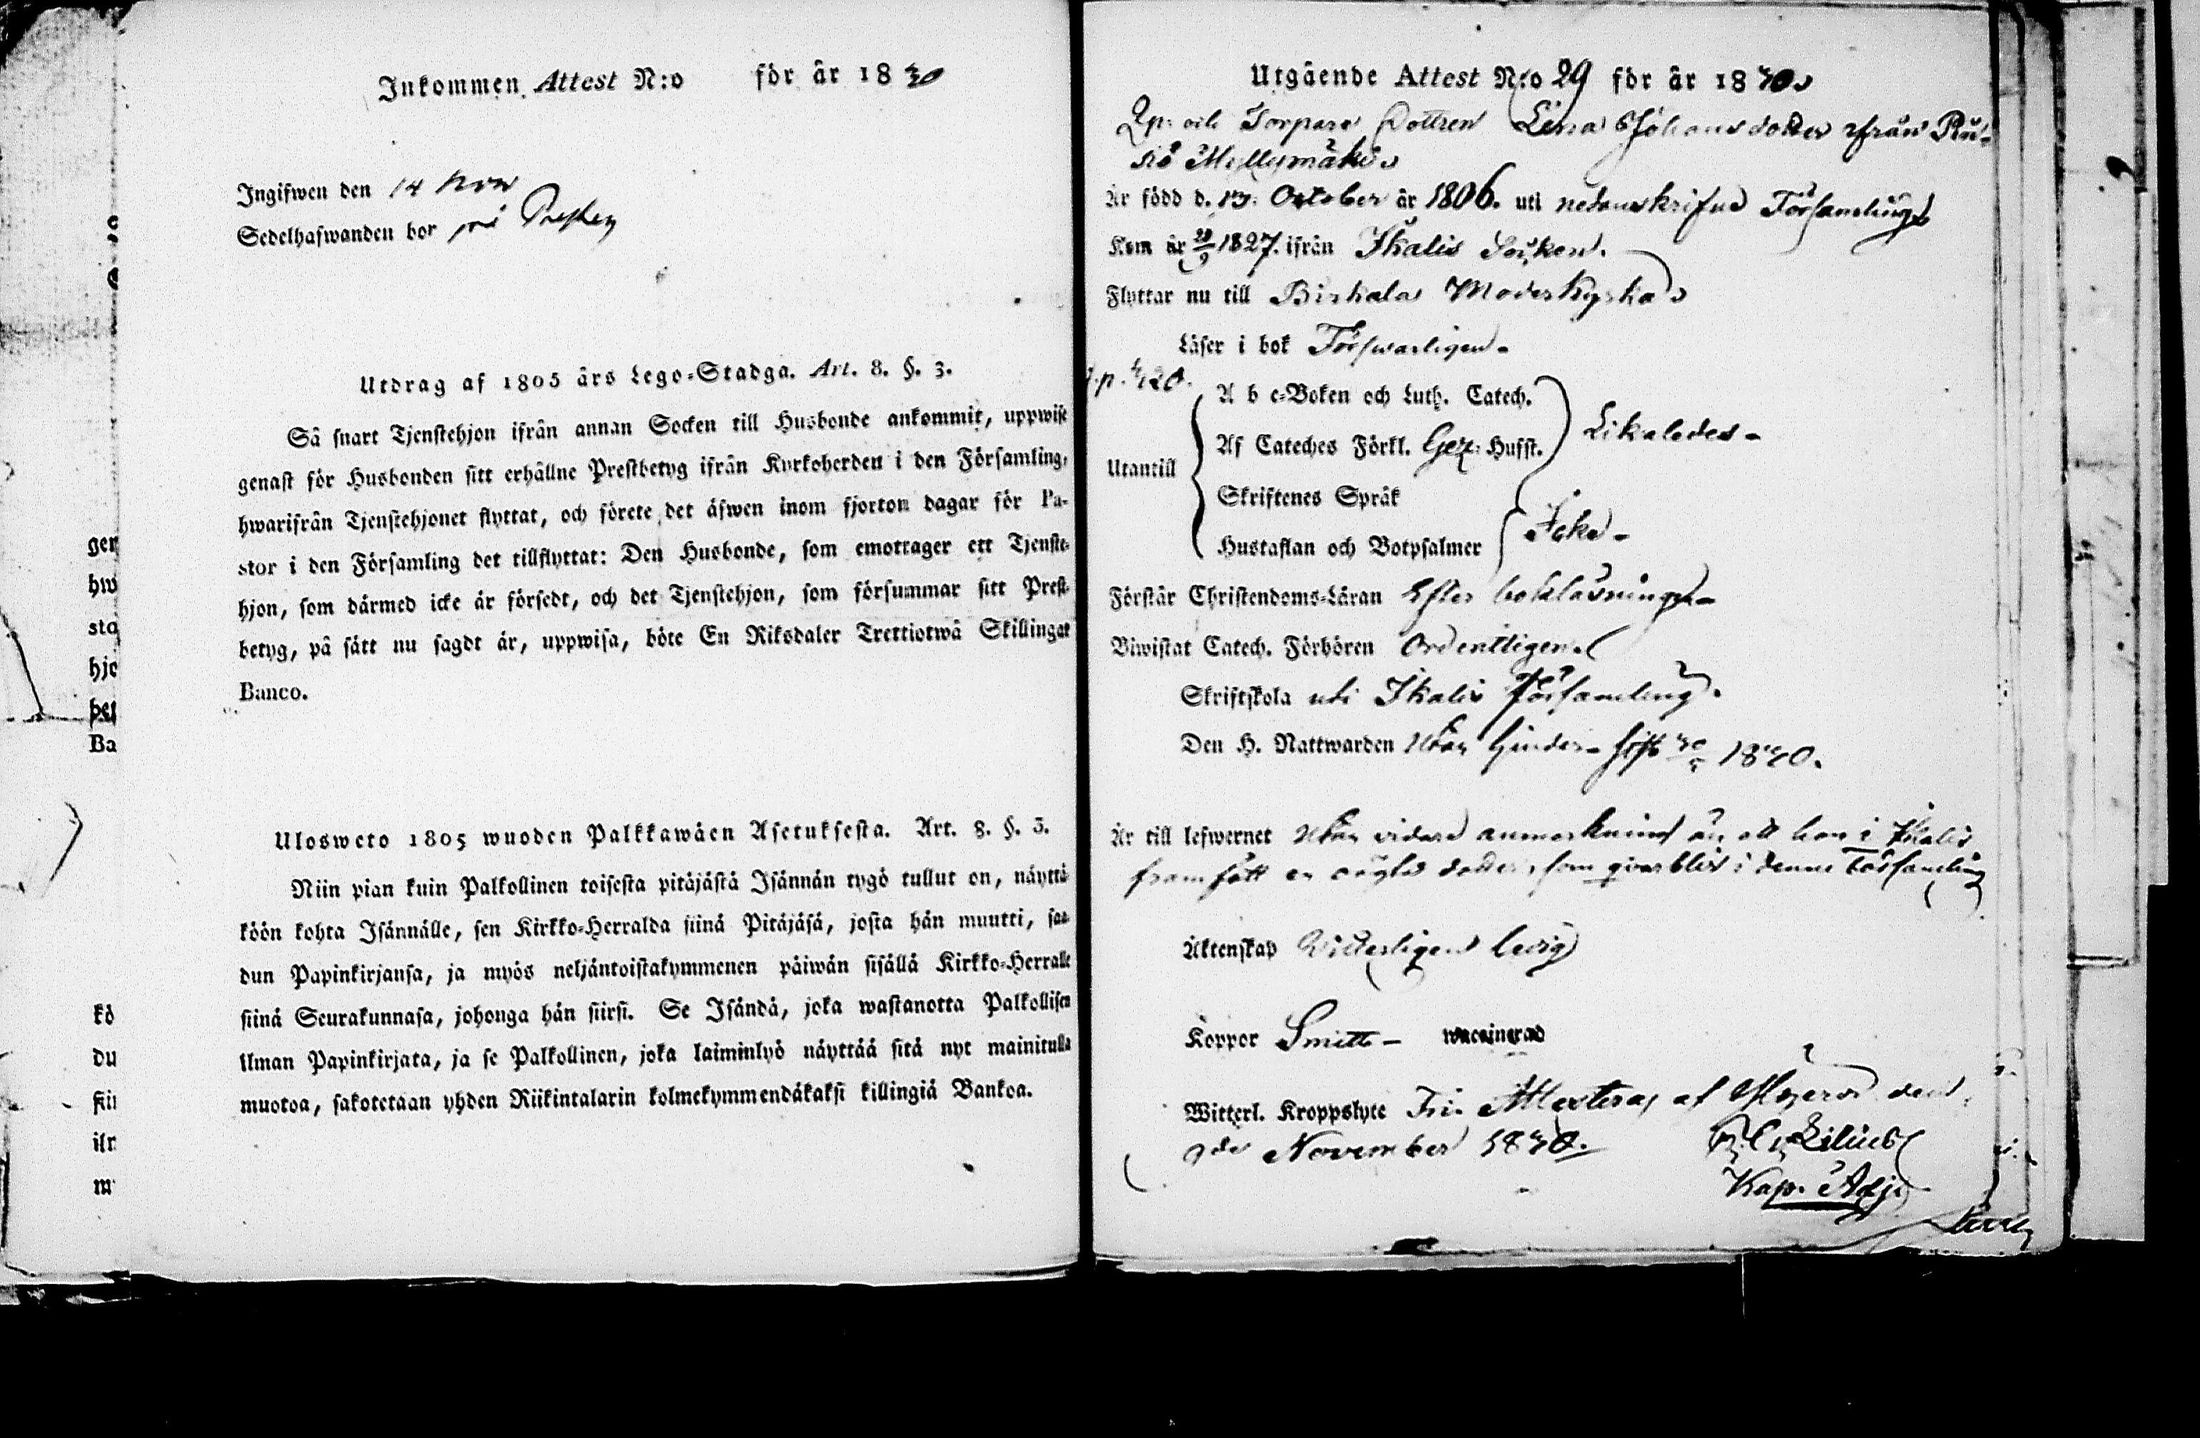 Inkommen Attest N:o för år 1830
Ingifwen den 14 Nov
Sedelhafwanden bor på
Utdrag af 1805 års Lego-Stadga. Art. 8. §. 3.
Så snart Tjenstehjon ifrån annan Socken till Husbonde ankommit, uppwise
genast för Husbonden sitt erhållne Prestbetyg ifrån Kyrkoherden i den Församling,
hwarifrån Tjenstehjonet flyttat, och förete det äfwen inom fjorton dagar för Pa-
stor i den Församling det tillflyttat: Den Husbonde, som emottager ett Tjenste-
hjon, som därmed icke är försedt, och det Tjenstehjon, som försummar sitt Prest-
betyg, på sätt nu sagdt är, uppwisa, böte En Riksdaler Trettiotwå Skillingar
Banco.
Ulosweto 1805 wuoden Palkkawäen Asetuksesta. Art. 8. §. 3.
Niin pian kuin Palkollinen toisesta pitäjästä Isännän tygö tullut on, näyttä-
köön kohta Isännälle, sen Kirkko-Herralda siinä Pitäjäsä, josta hän muutti, saa-
dun Papinkirjansa, ja myös neljäntoistakymmenen päiwän sisällä Kirkko-Herralle
siinä Seurakunnasa, johonga hän siirsi. Se Isändä, joka wastanotta Palkollisen
ilman Papinkirjata, ja se Palkollinen, joka laiminlyö näyttää sitä nyt mainitulla
muotoa, sakotetaan yhden Riikintalarin kolmekymmendäkaksi killingiä Bankoa.
Utgående Attest N:o 29 för år 1830
och Torpare Dottren Lena Johansdotter ifrån Ru-
Myllymäki
Är född d. October år 1806. uti nedanskrifne Församling
Kom år 1827. ifrån Ikalis Socken.
Flyttar nu till Birkala Moderkyrka
Läser i bok Förswarligen
A b c-Boken och Luth. Catech.
Af Cateches Förkl. Gez: Hufst. Likaledes
Utantill
Skriftenes Språk
Hustaflan och Botpsalmer Icke
Förstår Christendoms-Läran Efter bokläsningen
Biwistat Catech. Förhören Ordentligen
Skriftskola uti Ikalis församling
Den H. Nattwarden Utan hinder sist 1830.
Är till lefwernet Utan vidare anmerkning än att hon i Ikalis
framfödt en oägta dotter, som qvarblir i denne Församling
Äktenskap Witterligen ledig
Koppor Smitt wacinerad
Witterl. Kroppslyte Fri. Attesteras af den
9de November 1830. Lilius
Kap. Adj.